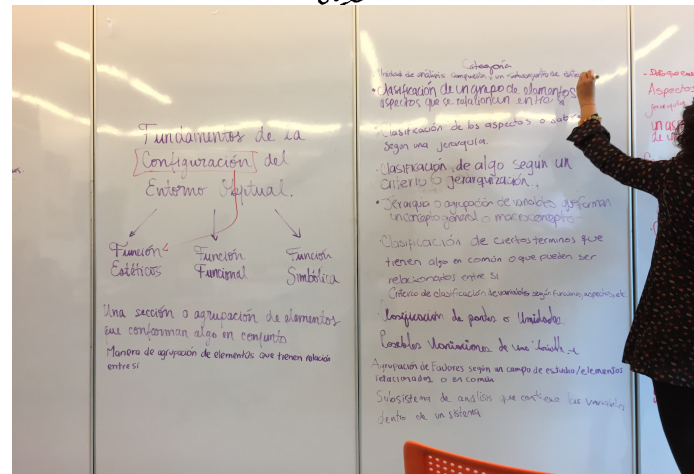 Fundamentos de la
Configuración del
Entorno
Función
Estéticos
Función
Funcional
Función
Simbólica
Una sección o agrupación de elementos
que conforman algo en conjunto
Manera de agrupación de elementos que tienen relación
entre si
Categoría
Unidad de análisis un
Clasificación de un grupo de elementos
aspectos que se relacionan entre
Clasificación de los aspectos o
Según una jerarquía.
Clasificación de algo según un
criterio o jerarquización.
Jerarquía o agrupación de variables que forman
un concepto general o macroconcepto
Clasificación de ciertos terminos que
tienen algo en común o que pueden ser
relacionados entre si
Criterio de clasificación de variables según funciones, aspectos, etc
de partes o Unidades
Posibles de una
Agrupación de Factores según un campo de estudio/elementos
relacionados o en común
Subsistema de análisis que contiene las variables
dentro de un sistema
Aspectos
jerarquía